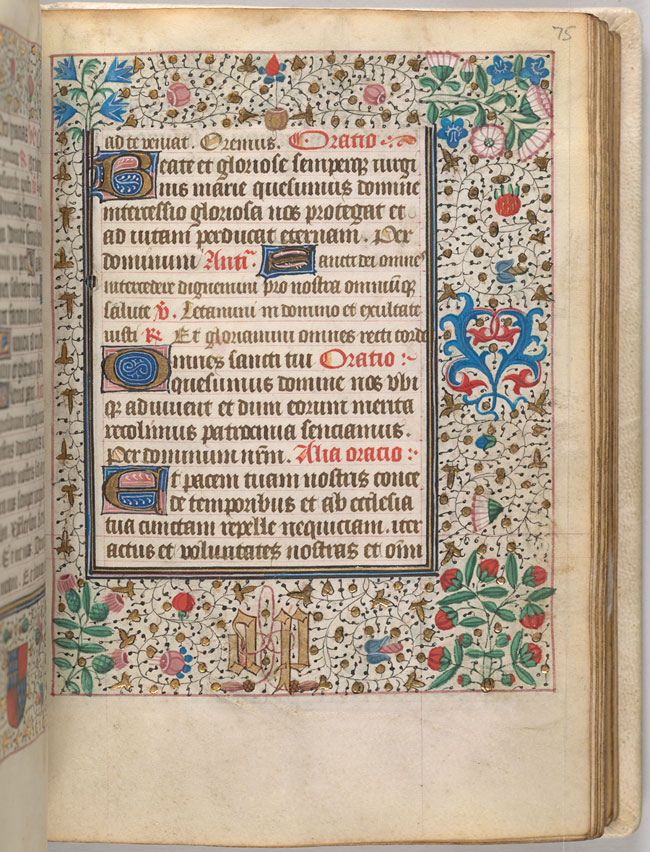 75
ad te veniat. Oremus. Oratio
Beate et gloriose semperq virgi
nis marie quesumus domine
intercessio gloriosa nos protegat et
ad vitam perducat eternam. Per
dominum Antiᵃ. Sancti dei omnes
intercedere dignemini pro nostra omniūq
salute ℣. Letamini in domino et exultate
iusti ℟. Et gloriamini omnes recti corde
Omnes sancti tui Oratio :
quesumus domine nos vbi
q adiuuent et dum eorum merita
recolimus patrocinia senciamus.
Per dominum nr̄m. Alia oratio :
Et pacem tuam nostris conce
de temporibus et ab ecclesia
tua cunctam repelle nequiciam. iter
actus et voluntates nostras et om̄i
a p